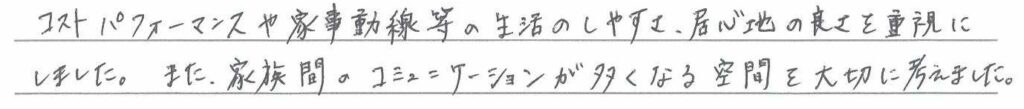 コストパフォーマンスや家事動線等の生活のしやすさ、居心地の良さを重視に
しました。また、家族間のコミュニケーションが多くなる空間を大切に考えました。